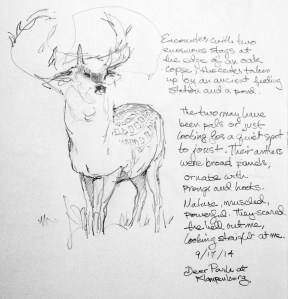 Encounter with two
enormous stags at
the edge of an oak
copse, the center taken
up by an ancient feeding
station and a pond.
The two may have
been pals or just
looking for a quiet spot
to joust. Their antlers
were broad panels,
ornate with
prongs and hooks.
Mature, muscled,
powerful. They scared
the hell out me,
looking straight at me.
9/17/14
Deer Park at
Klampenborg